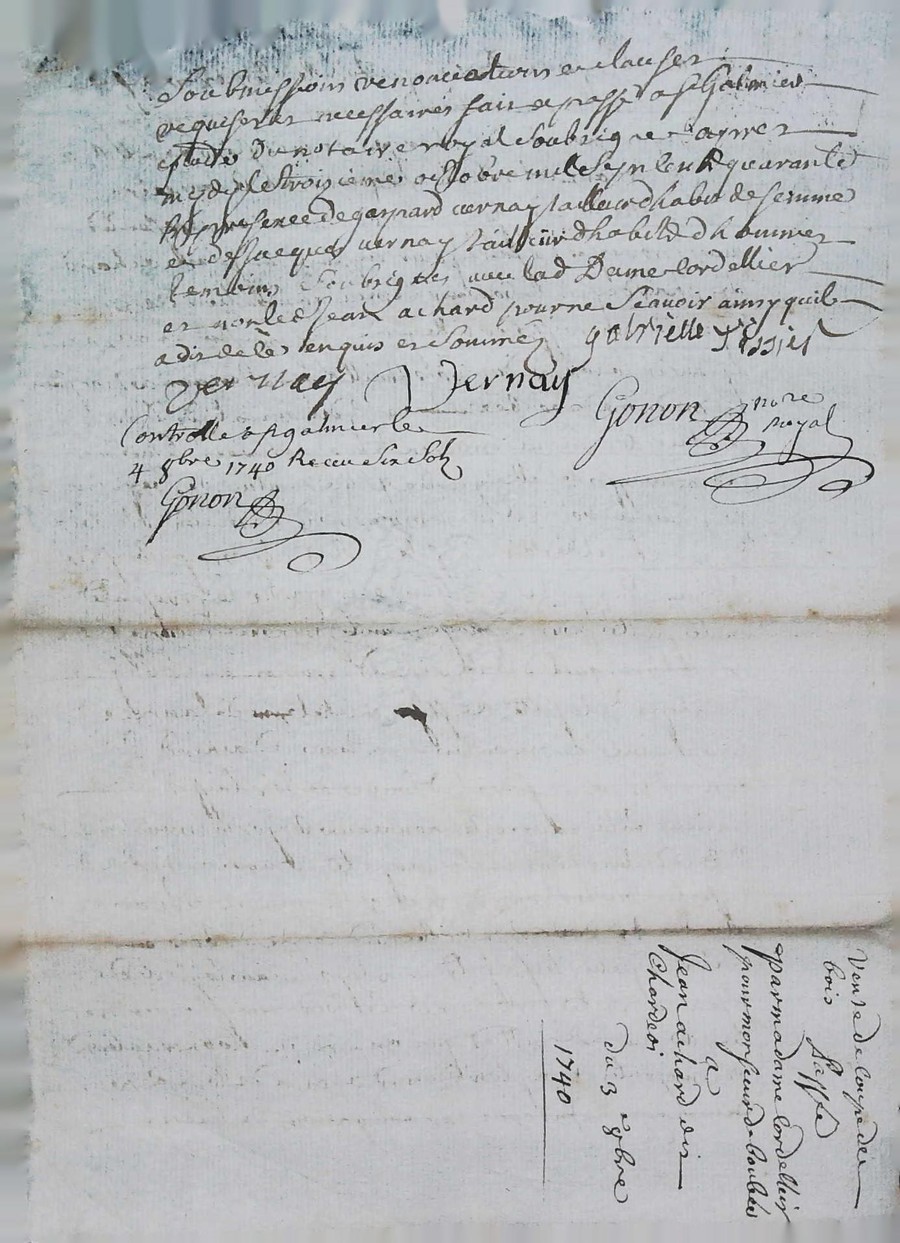 Soubmissions renonciations et clauses
requises et necessaires fait et passé a st Galmier
estude du notaire royal soubzigné apres
midy le troisieme octobre mil sept cent quarante
En presence de gaspard vernay tailleur dhabit de femme
et de Jacques vernay tailleur dhabit d hommes
temoins soubsignes avec lad Dame Cordellier
et non led Jean achard pour ne scavoir ainsy quil
a dit de ce enquis et sommé gabrielle
Vernay Vernay
Gonon nore
royal
Controllé a st galmier le
4 8bre 1740 Receu six sols
Gonon
Vente de coupe de
bois
passée
par madame Cordellier
pour monsieur de boubée
a
Jean achard dit
Chardesi
du 3 8bre
1740